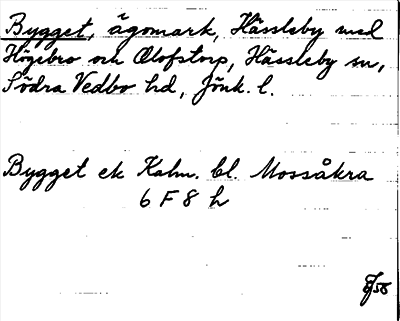 Bygget, ägomark, Hässleby med
Högebro och Olofstorp, Hässleby sn,
Södra Vedbo hd, Jönk. l.
Bygget ek Kalm. bl. Mossåkra
6 F 8 h